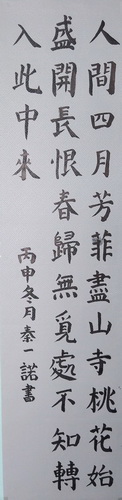 人間四月芳菲盡山寺桃花始
盛開長恨春歸無覓處不知轉
入此中來
丙申冬月秦一諾書